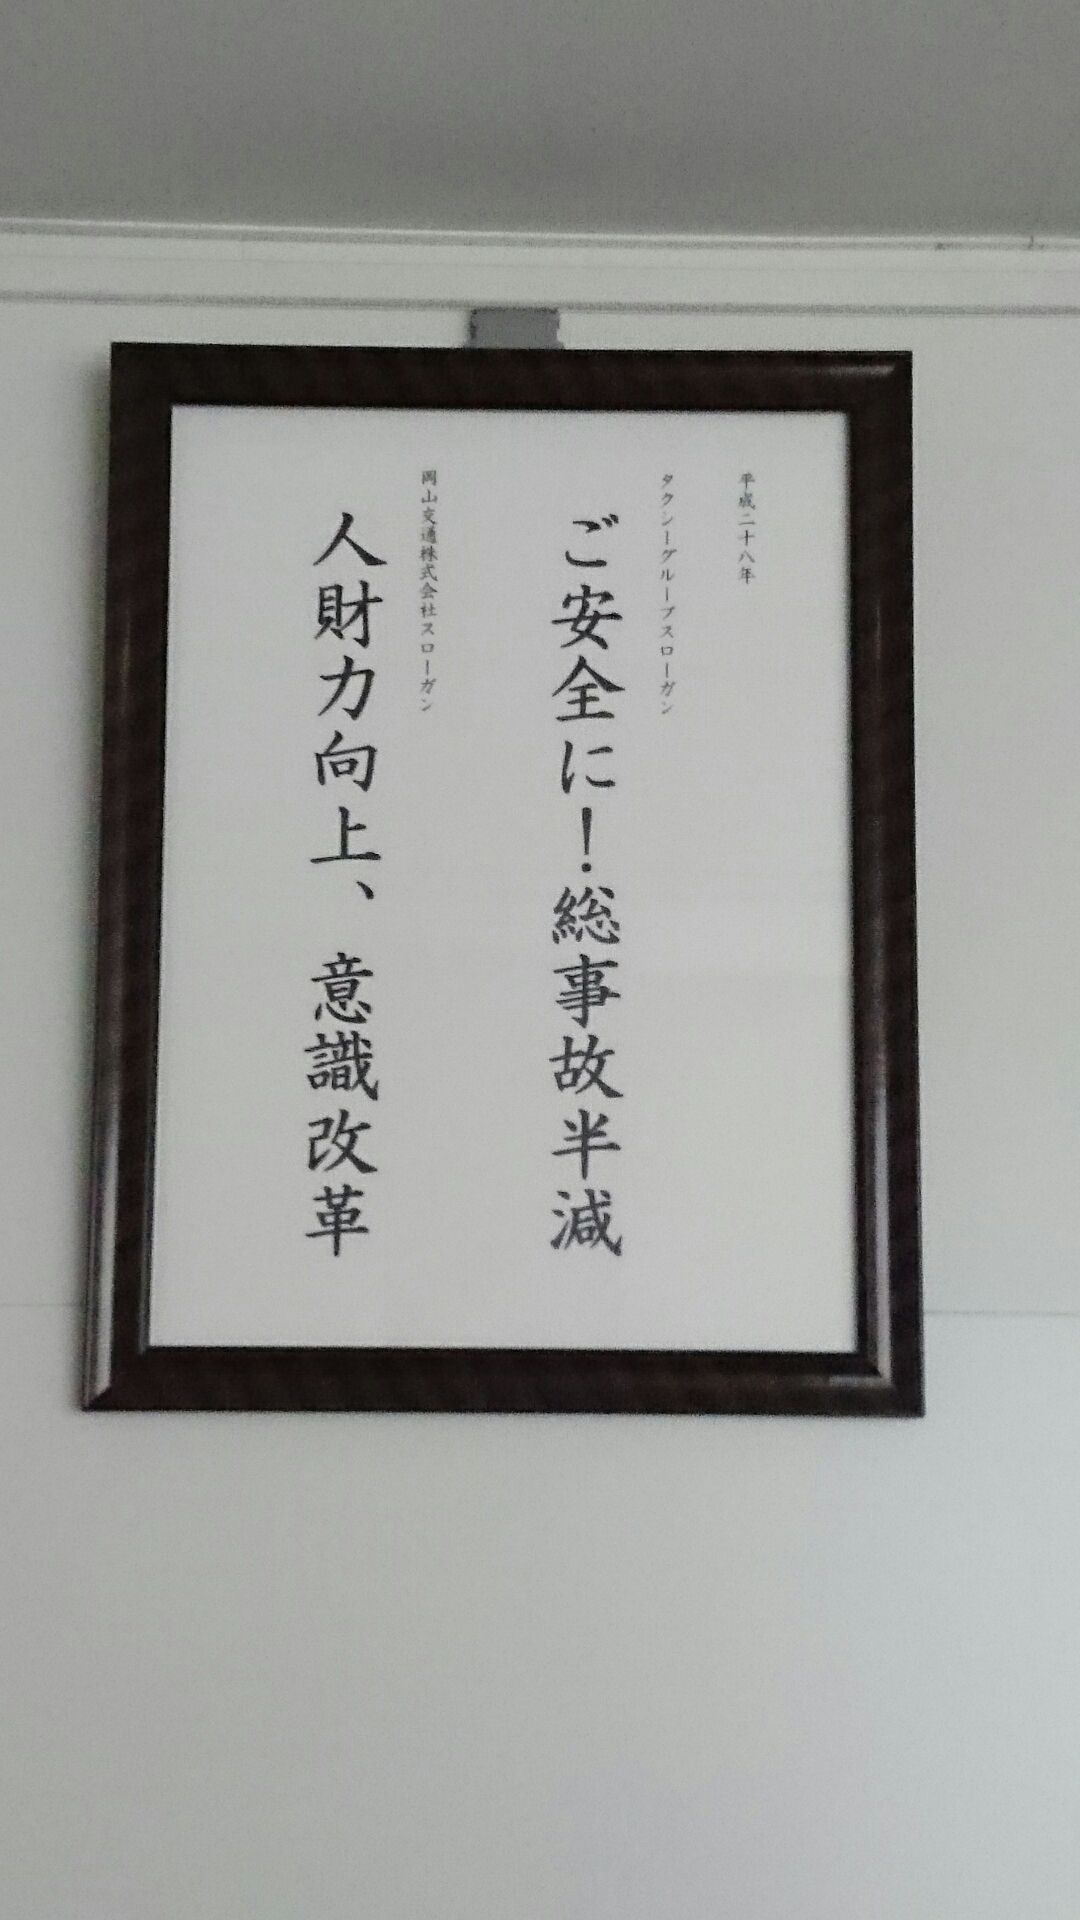 平成二十八年
タクシーグループスローガン
ご安全に!総事故半減
岡山交通株式会社スローガン
人財力向上、意識改革